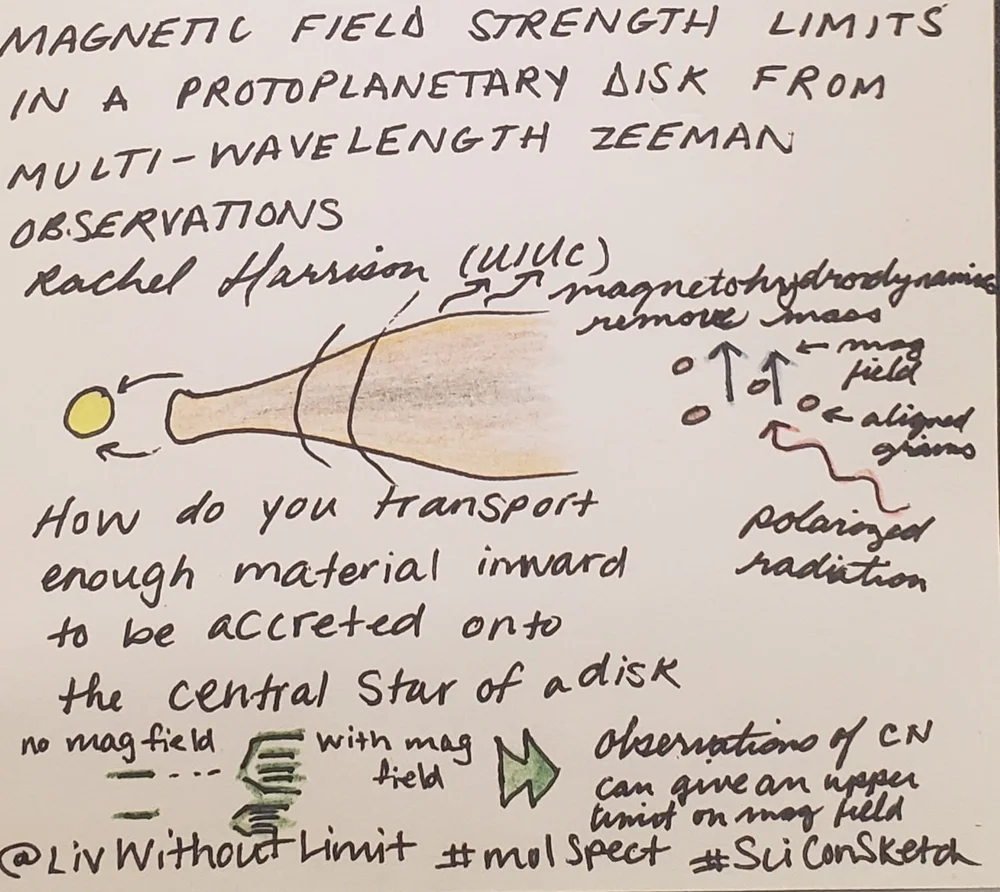 MAGNETIC FIELD STRENGTH LIMITS
IN A PROTOPLANETARY DISK FROM
MULTI-WAVELENGTH ZEEMAN
OBSERVATIONS
Rachel Harrison (UIUC)
magnetohydrodynamics
remove mass
mag
field
aligned
grains
polarized
radiation
How do you transport
enough material inward
to be accreted onto
the central star of a disk
no mag field
with mag
field
Observations of CN
can give an upper
limit on mag field
@LivWithoutLimit #molSpect #SciConSketch